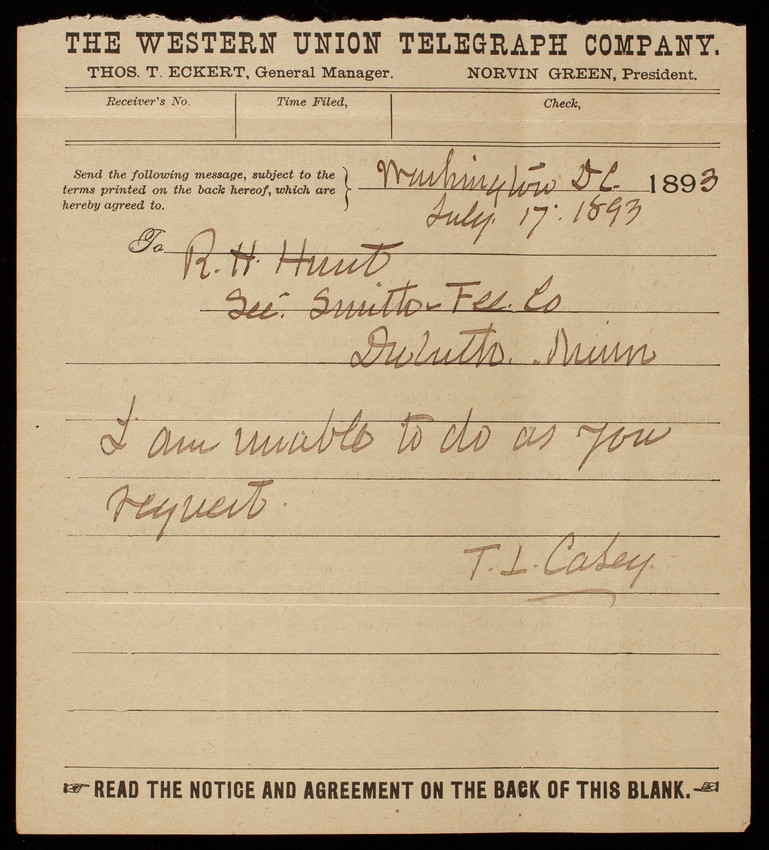 THE WESTERN UNION TELEGRAPH COMPANY.
THOS. T. ECKERT, General Manager. NORVIN GREEN, President.
Receiver's No. Time Filed, Check,
Send the following message, subject to the
terms printed on the back hereof, which are
hereby agreed to.
Washington D.C. 1893
July. 17. 1893
To R. H. Hunt
Sec. Smith- Fee. Co
Duluth. Minn
I am unable to do as you
request.
T. L. Casey.
READ THE NOTICE AND AGREEMENT ON THE BACK OF THIS BLANK.